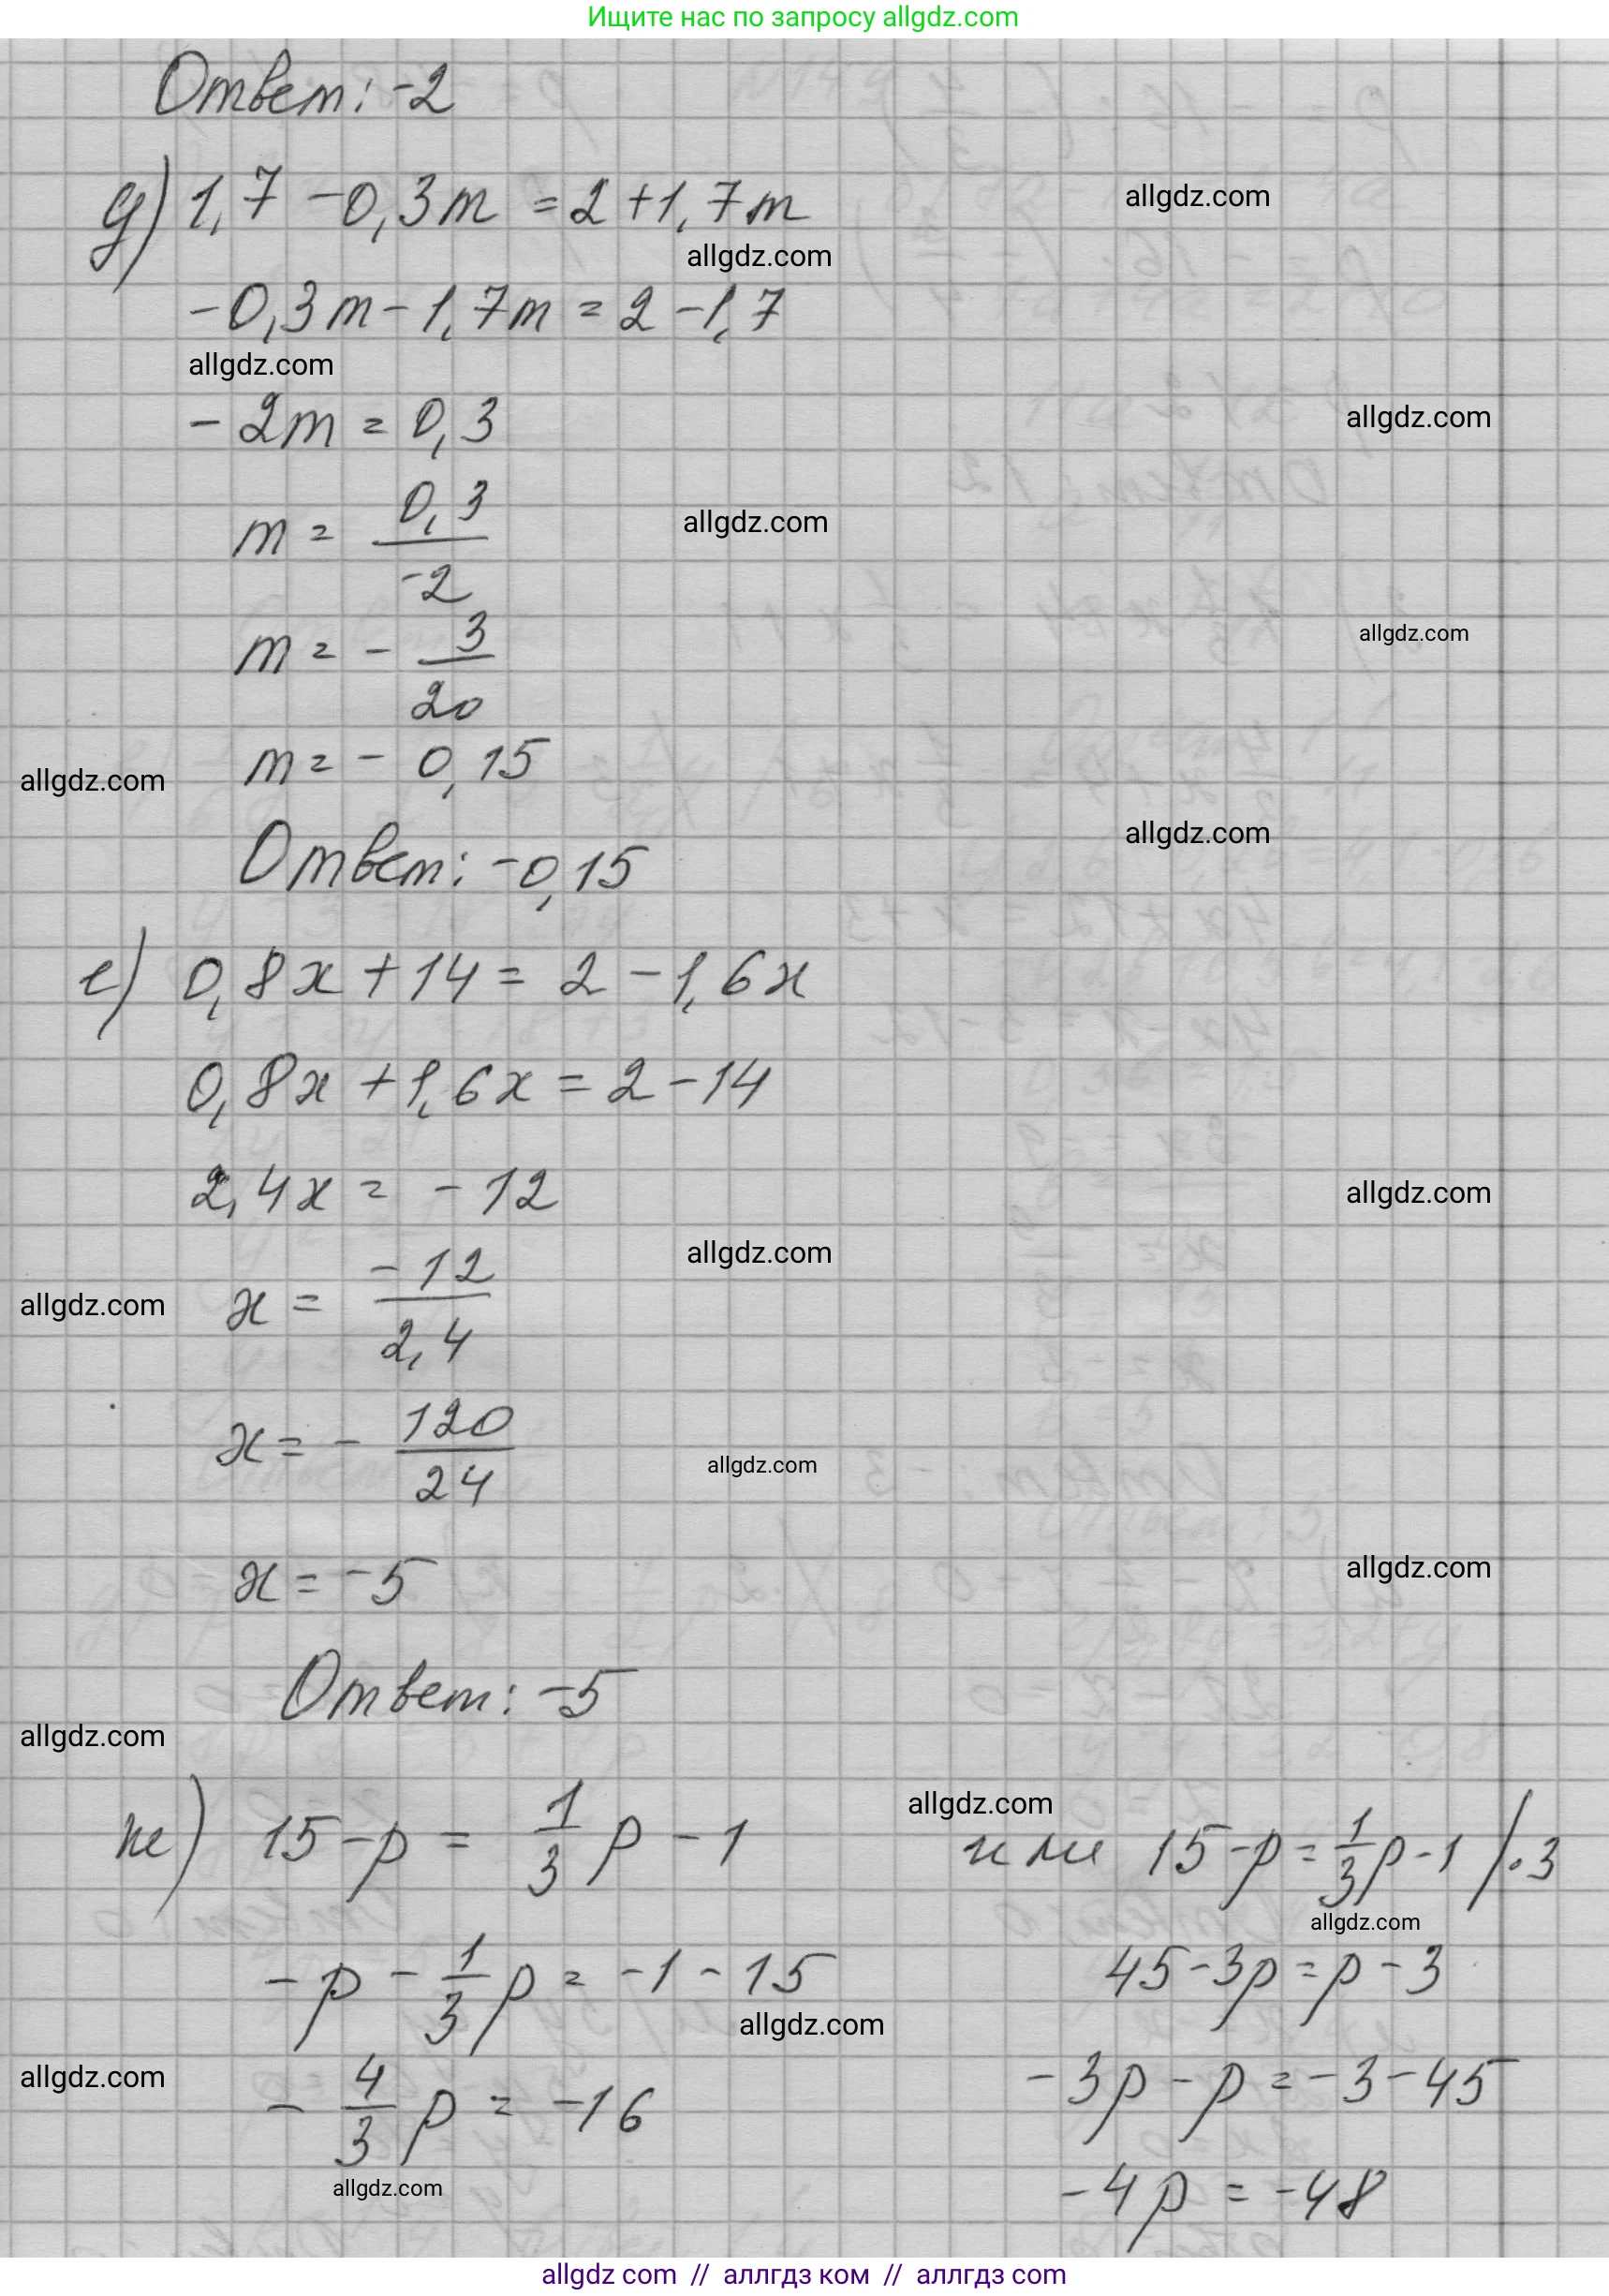 Ищите нас по запросу allgdz.com
Ответ: -2
д) 1,7 - 0,3m = 2 + 1,7m
allgdz.com
allgdz.com
-0,3m - 1,7m = 2 - 1,7
allgdz.com
-2m = 0,3
allgdz.com
m = 0,3/-2
allgdz.com
m = - 3/20
allgdz.com
m = - 0,15
allgdz.com
allgdz.com
Ответ: -0,15
е) 0,8x + 14 = 2 - 1,6x
0,8x + 1,6x = 2 - 14
2,4x = - 12
allgdz.com
allgdz.com
x = -12/2,4
allgdz.com
x = - 120/24
allgdz.com
x = -5
allgdz.com
Ответ: -5
allgdz.com
allgdz.com
ж) 15 - p = 1/3 p - 1 или 15 - p = 1/3 p - 1 /·3
allgdz.com
-p - 1/3 p = -1 - 15 45 - 3p = p - 3
allgdz.com
allgdz.com
- 4/3 p = -16 -3p - p = -3 - 45
allgdz.com
-4p = -48
allgdz com // аллгдз ком // аллгдз com